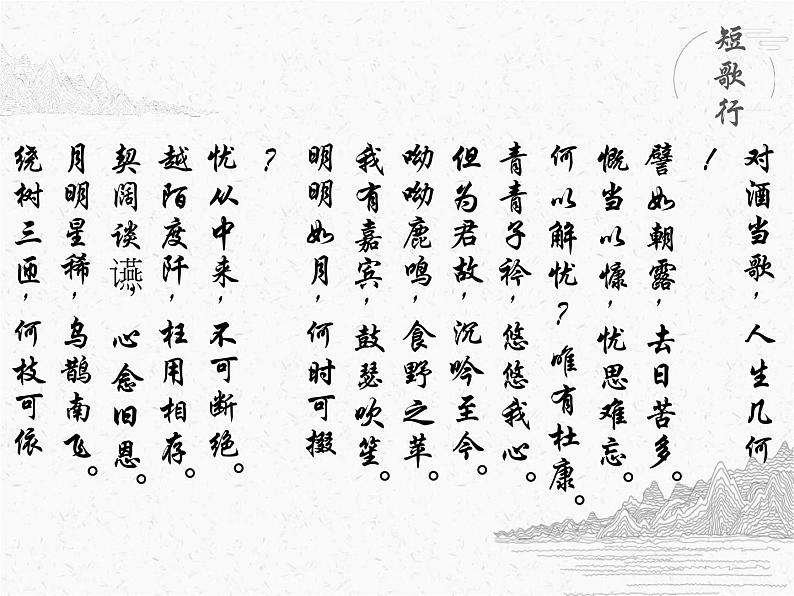 短歌行
对酒当歌，人生几何
！
譬如朝露，去日苦多。
慨当以慷，忧思难忘。
何以解忧？唯有杜康。
青青子衿，悠悠我心。
但为君故，沉吟至今。
呦呦鹿鸣，食野之苹。
我有嘉宾，鼓瑟吹笙。
明明如月，何时可掇
？
忧从中来，不可断绝。
越陌度阡，枉用相存。
契阔谈䜩，心念旧恩。
月明星稀，乌鹊南飞。
绕树三匝，何枝可依